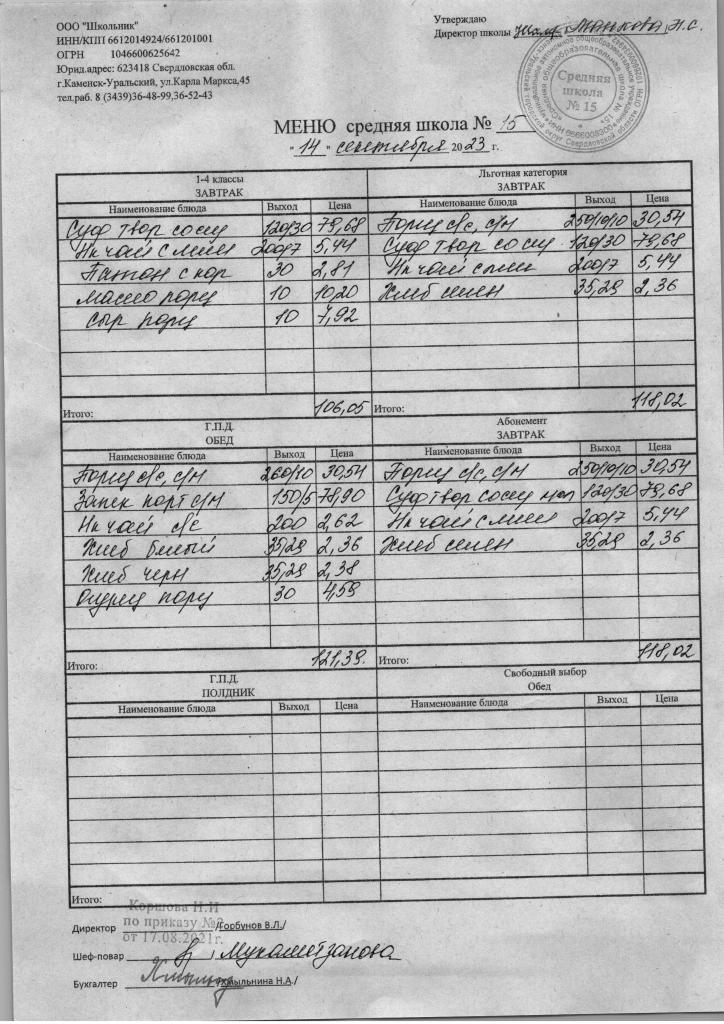 ООО "Школьник"
ИНН/КПП 6612014924/661201001
ОГРН 1046600625642
Юрид.адрес: 623418 Свердловская обл.
г.Каменск-Уральский, ул.Карла Маркса,45
тел.раб. 8 (3439)36-48-99,36-52-43
Утверждаю
Директор школы
Средняя
школа
№ 15
МЕНЮ средняя школа № 15
" 14 " сентября 2023 г.
1-4 классы
ЗАВТРАК
Льготная категория
ЗАВТРАК
Наименование блюда Выход Цена Наименование блюда Выход Цена
Суф твор со сгущ 120/30 79,68 Борщ с/с, с/м 250/10/10 30,54
Нк чай с лим 200/7 5,44 Суф твор со сгущ 120/30 79,68
Батон с нар 30 2,81 Нк чай с лим 200/7 5,44
Масло порц 10 10,20 Хлеб пшен 35,29 2,36
Сыр порц 10 7,92
Итого: 106,05 Итого: 118,02
Г.П.Д.
ОБЕД
Абонемент
ЗАВТРАК
Наименование блюда Выход Цена Наименование блюда Выход Цена
Борщ с/с, с/м 260/10 30,54 Борщ с/с, с/м 250/10/10 30,54
Запек карт с/м 150/5 78,90 Суф твор со сгущ мол 120/30 79,68
Нк чай с/с 200 2,62 Нк чай с лим 200/7 5,44
Хлеб белый 35,29 2,36 Хлеб пшен 35,29 2,36
Хлеб черн 35,29 2,38
Огурец порц 30 4,59
Итого: 121,39. Итого: 118,02
Г.П.Д.
ПОЛДНИК
Свободный выбор
Обед
Наименование блюда Выход Цена Наименование блюда Выход Цена
Итого:
Коршова Н.И
по приказу №2
от 17.08.2021г.
Директор /Горбунов В.Л./
Шеф-повар Мухаметзанова
Бухгалтер /Хмыльнина Н.А./